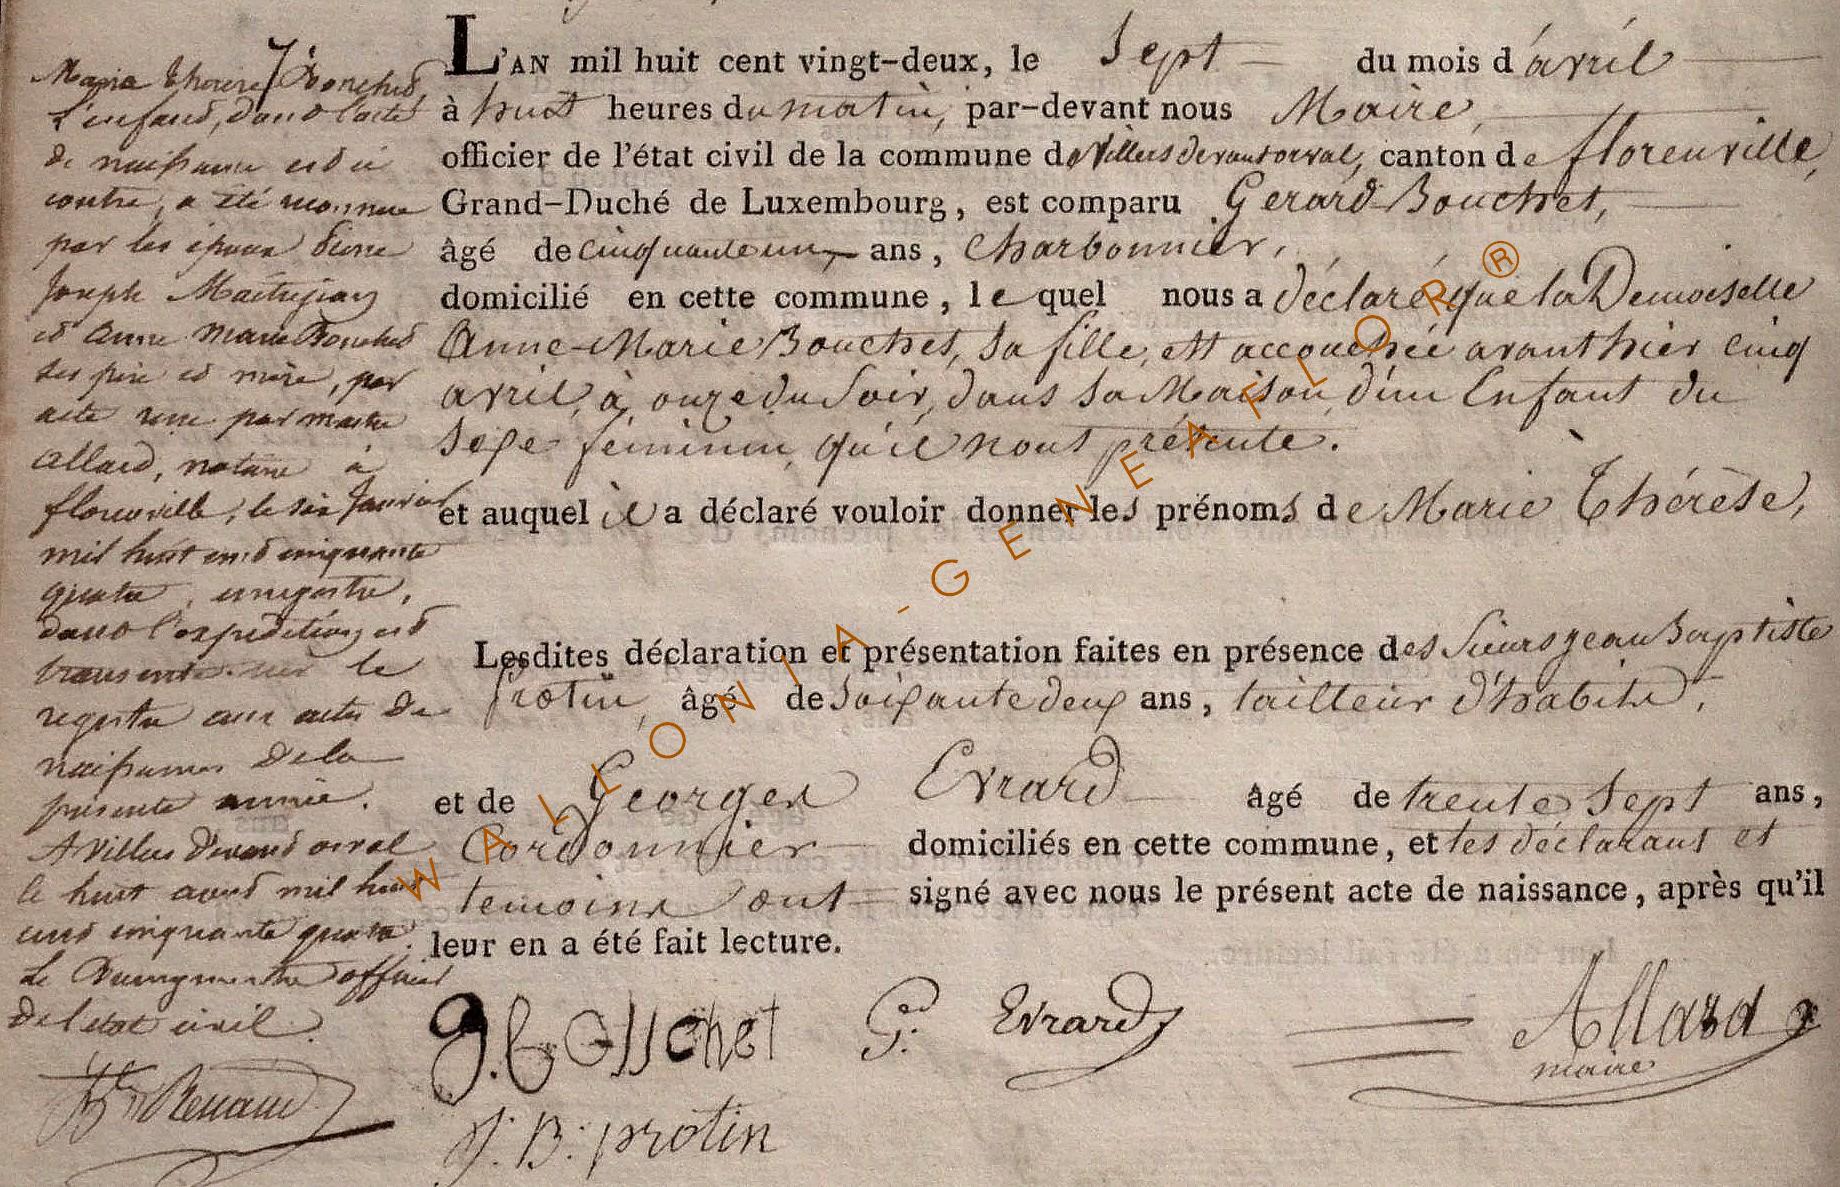 L'AN mil huit cent vingt-deux, le Sept du mois d'avril
à huit heures du matin, par-devant nous Maire,
officier de l'état civil de la commune de Villers devant orval, canton de florenville,
Grand-Duché de Luxembourg, est comparu Gerard Bouchet,
âgé de cinquante un ans, Charbonnier,
domicilié en cette commune, le quel nous a déclaré que la Demoiselle
Anne-Marie Bouchet, sa fille, est accouchée avant hier cinq
avril, à onze du Soir, dans sa Maison, d'un Enfant du
sexe féminin, qu'il nous présente.
et auquel il a déclaré vouloir donner les prénoms de Marie Thérèse,
Lesdites déclaration et présentation faites en présence des Sieurs jean Baptiste
Protin, âgé de Soixante deux ans, tailleur d'habits,
et de Georges Evrard âgé de trente Sept ans,
Cordonnier domiciliés en cette commune, et les déclarant et
temoins ont signé avec nous le présent acte de naissance, après qu'il
leur en a été fait lecture.
g. Bouchet G. Evrard Allard
maire
J. B. protin
Marie therese Bouchet,
l'enfant, dans l'acte
de naissance est ci
contre, a été reconnue
par les époux
Joseph
et anne marie Bouchet
ses père et mère, par
acte reçu par maitre
allard, notaire à
florenville, le six Janvier
mil huit cent cinquante
quatre, enregistré,
dont l'expédition est
transcrite sur le
registre aux actes de
naissances de la
présente année.
A Villers devant orval
le huit aout mil huit
cent cinquante quatre.
Le Bourgmestre officier
de l'etat civil.
Renaud
WALLONIA-GENEAFLOR®